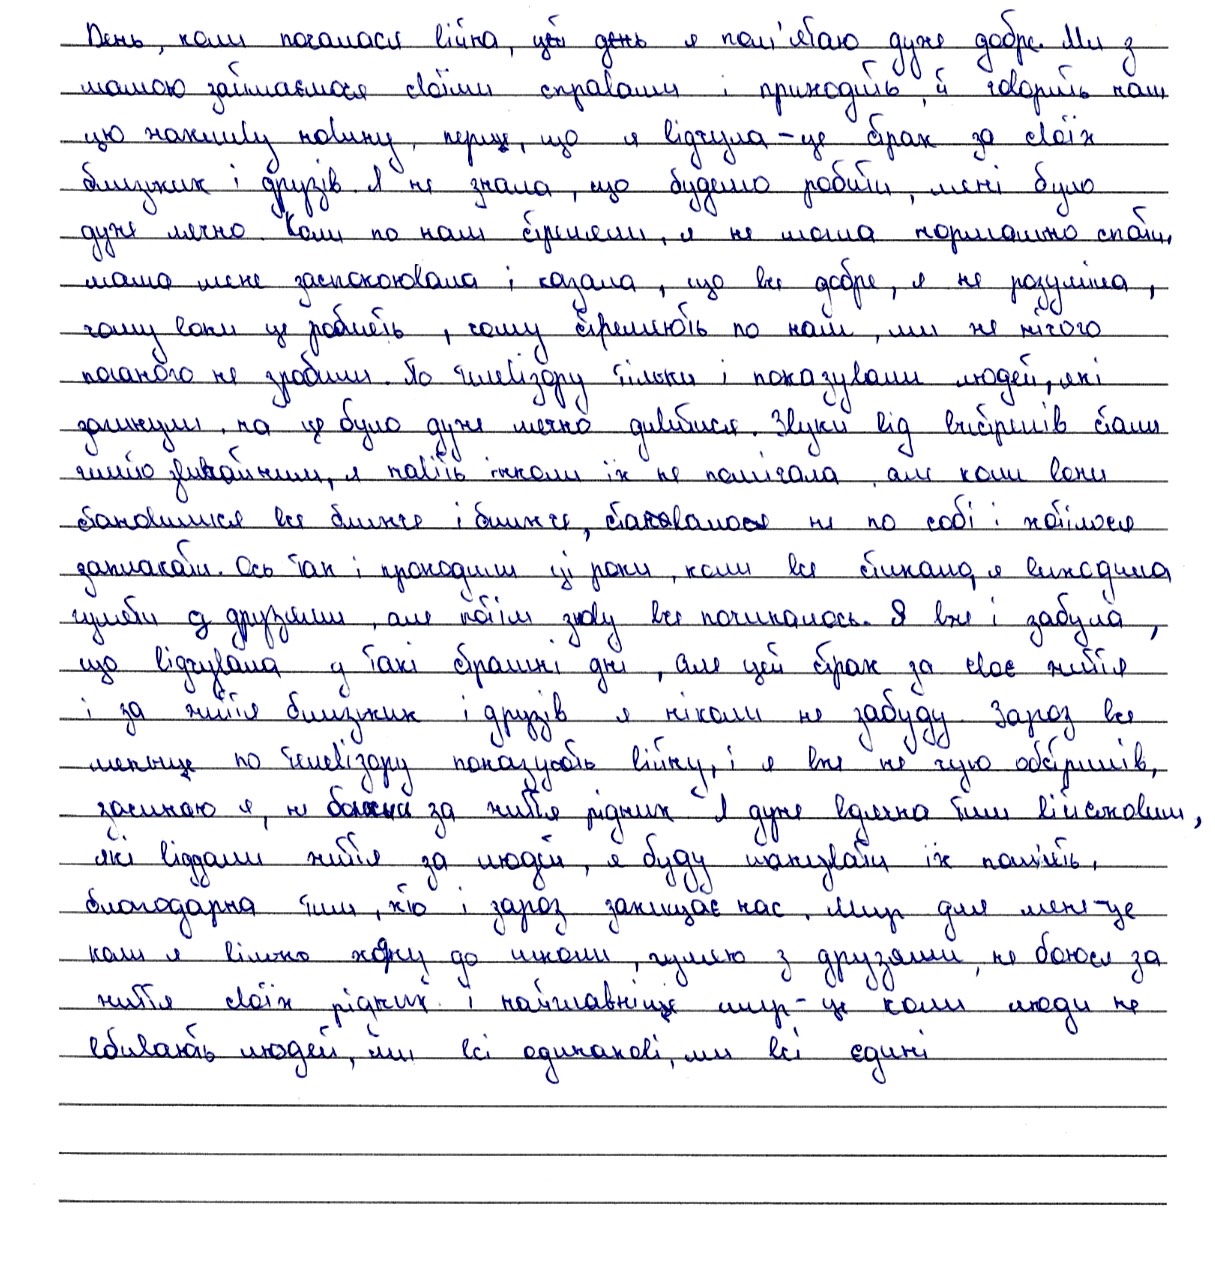 День, коли почалася війна, цей день я пам'ятаю дуже добре. Ми з
мамою займаємося своїми справами і приходить, й говорить нам
цю жахливу новину, перше, що я відчула – це страх за своїх
близьких і друзів. Я не знала, що будемо робити, мені було
дуже лячно. Коли по нам стріляли, я не могла нормально спати,
мама мене заспокоювала і казала, що все добре, я не розуміла,
чому вони це роблять, чому стріляють по нам, ми не нічого
поганого не зробили. По телевізору тільки і показували людей, які
загинули, на це було дуже лячно дивитися. Звуки від вистрілів стали
чимто звичайним, я навіть інколи їх не помічала, але коли вони
становилися все ближче і ближче, становалося не по собі і хотілося
заплакати. Ось так і проходили ці роки, коли все стихало, я виходила
гуляти з друзями, але потім знову все починалось. Я вже і забула,
що відчувала у такі страшні дні, але цей страх за своє життя
і за життя близьких і друзів я ніколи не забуду. Зараз все
меньше по телевізору показують війну, і я вже не чую обстрілів,
засинаю я, не за життя рідних. Я дуже вдячна тим військовим,
які віддали життя за людей, я буду шанувати їх пам'ять,
благодарна тим, хто і зараз захищає нас. Мир для мене – це
коли я вільно ходжу до школи, гуляю з друзями, не боюся за
життя своїх рідних. І найглавніше мир – це коли люди не
вбивають людей, ми всі одинакові, ми всі єдині